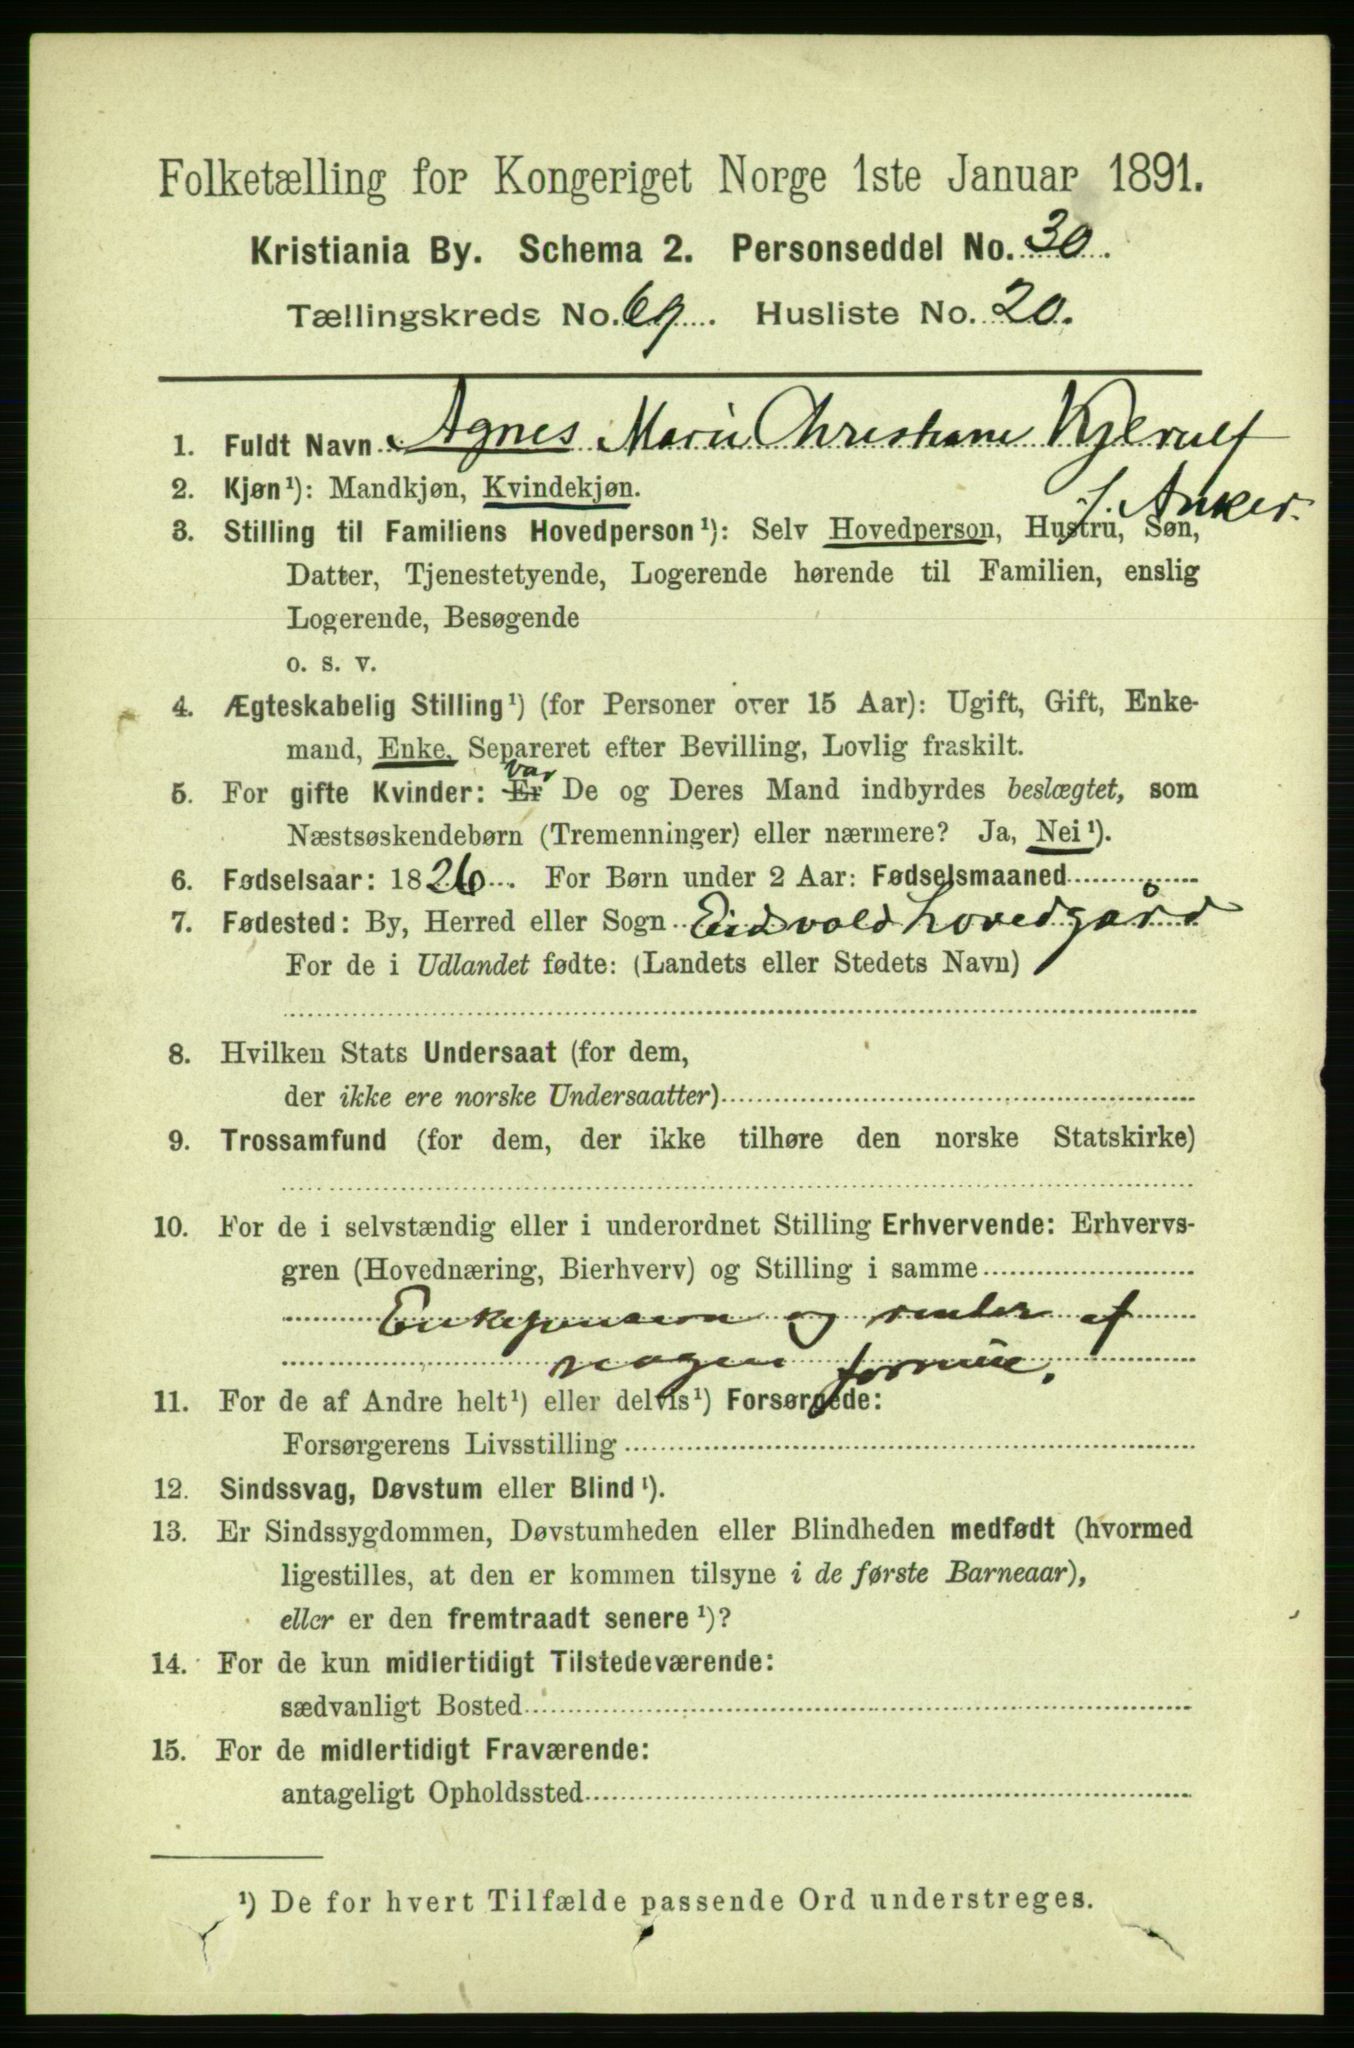 Folketælling for Kongeriget Norge 1ste Januar 1891.
Kristiania By. Schema 2. Personseddel No. 30.
Tællingskreds No. 69. Husliste No. 20.
1. Fuldt Navn Agnes Marie Christiane Kjerulf
f. Anker.
2. Kjøn¹): Mandkjøn, Kvindekjøn.
3. Stilling til Familiens Hovedperson¹): Selv Hovedperson, Hustru, Søn,
Datter, Tjenestetyende, Logerende hørende til Familien, enslig
Logerende, Besøgende
o. s. v.
4. Ægteskabelig Stilling¹) (for Personer over 15 Aar): Ugift, Gift, Enke-
mand, Enke, Separeret efter Bevilling, Lovlig fraskilt.
var
5. For gifte Kvinder: Er De og Deres Mand indbyrdes beslægtet, som
Næstsøskendebørn (Tremenninger) eller nærmere? Ja, Nei¹).
6. Fødselsaar: 1826. For Børn under 2 Aar: Fødselsmaaned
7. Fødested: By, Herred eller Sogn Eidsvold hovedgård
For de i Udlandet fødte: (Landets eller Stedets Navn)
8. Hvilken Stats Undersaat (for dem,
der ikke ere norske Undersaatter)
9. Trossamfund (for dem, der ikke tilhøre den norske Statskirke)
10. For de i selvstændig eller i underordnet Stilling Erhvervende: Erhvervs-
gren (Hovednæring, Bierhverv) og Stilling i samme
Enkepension og renter af
nogen formue.
11. For de af Andre helt¹) eller delvis¹) Forsørgede:
Forsørgerens Livsstilling
12. Sindssvag, Døvstum eller Blind¹).
13. Er Sindssygdommen, Døvstumheden eller Blindheden medfødt (hvormed
ligestilles, at den er kommen tilsyne i de første Barneaar),
eller er den fremtraadt senere¹)?
14. For de kun midlertidigt Tilstedeværende:
sædvanligt Bosted
15. For de midlertidigt Fraværende:
antageligt Opholdssted
¹) De for hvert Tilfælde passende Ord understreges.